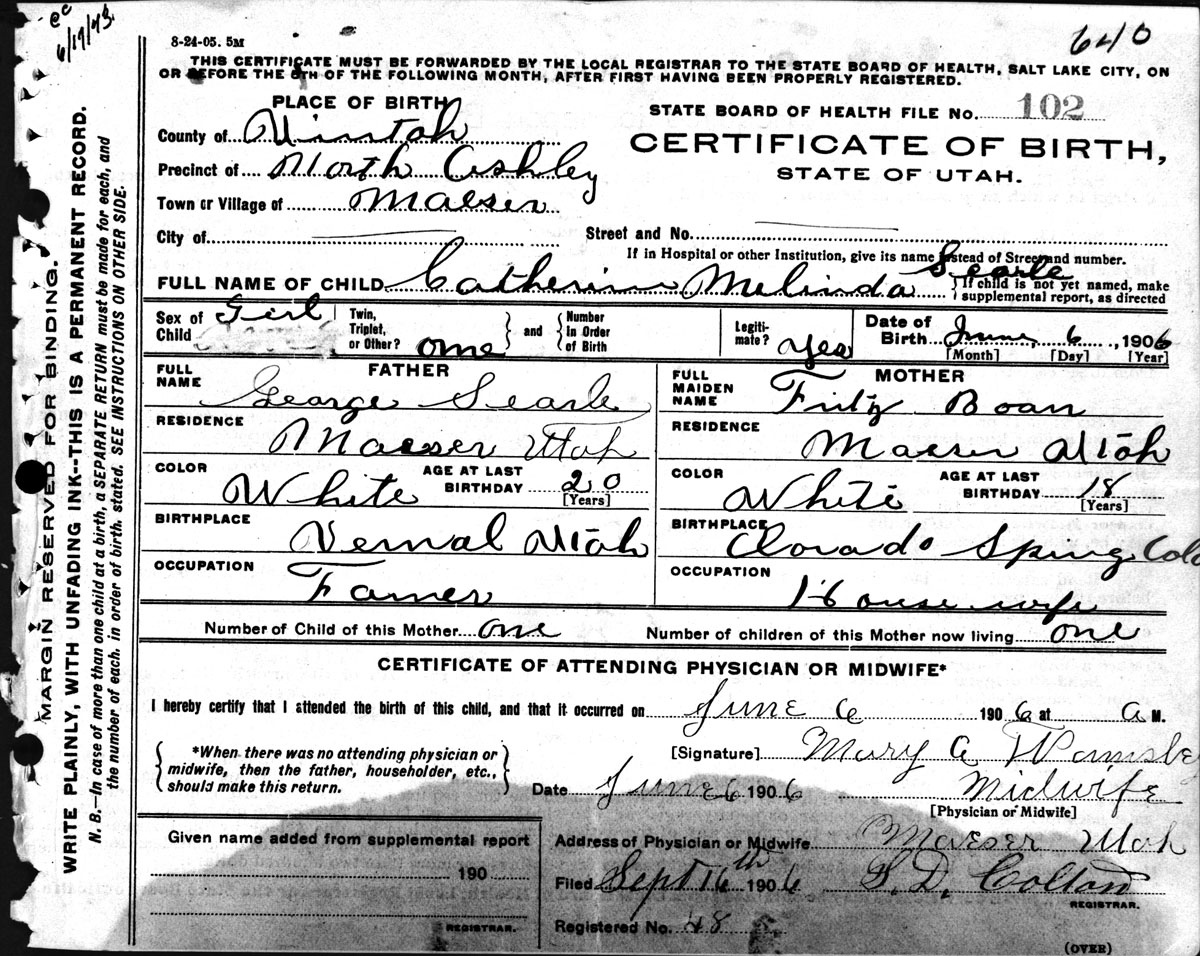 cc
6/19/43
640
8-24-05. 5M
THIS CERTIFICATE MUST BE FORWARDED BY THE LOCAL REGISTRAR TO THE STATE BOARD OF HEALTH, SALT LAKE CITY, ON
OR BEFORE THE 5TH OF THE FOLLOWING MONTH, AFTER FIRST HAVING BEEN PROPERLY REGISTERED.
PLACE OF BIRTH
STATE BOARD OF HEALTH FILE No. 102
County of Uintah
CERTIFICATE OF BIRTH,
Precinct of North Ashley
STATE OF UTAH.
Town or Village of Maeser
City of
Street and No.
If in Hospital or other Institution, give its name instead of Street and number.
FULL NAME OF CHILD Catherine Melinda Searle
{If child is not yet named, make
supplemental report, as directed
Sex of Child Girl
Twin, Triplet, or Other? one } and { Number In Order of Birth
Legiti- mate? yes
Date of Birth June 6, 1906
[Month] [Day] [Year]
FATHER
FULL NAME George Searle
RESIDENCE Maeser Utah
COLOR White AGE AT LAST BIRTHDAY 20 [Years]
BIRTHPLACE Vernal Utah
OCCUPATION Famer
MOTHER
FULL MAIDEN NAME Fritz Boan
RESIDENCE Maeser Utah
COLOR White AGE AT LAST BIRTHDAY 18 [Years]
BIRTHPLACE Clorado Spring Colo
OCCUPATION House wife
Number of Child of this Mother one Number of children of this Mother now living one
CERTIFICATE OF ATTENDING PHYSICIAN OR MIDWIFE*
I hereby certify that I attended the birth of this child, and that it occurred on June 6 1906 at a M.
{ *When there was no attending physician or
midwife, then the father, householder, etc.,
should make this return. }
[Signature] Mary A
Date June 6 1906 Midwife
[Physician or Midwife]
Given name added from supplemental report
190
REGISTRAR.
Address of Physician or Midwife Maeser Utah
Filed Sept 16th 1906 S. D. Colton
REGISTRAR.
Registered No. 48
(OVER)
MARGIN RESERVED FOR BINDING.
WRITE PLAINLY, WITH UNFADING INK--THIS IS A PERMANENT RECORD.
N. B.—In case of more than one child at a birth, a SEPARATE RETURN must be made for each, and
the number of each, in order of birth, stated. SEE INSTRUCTIONS ON OTHER SIDE.